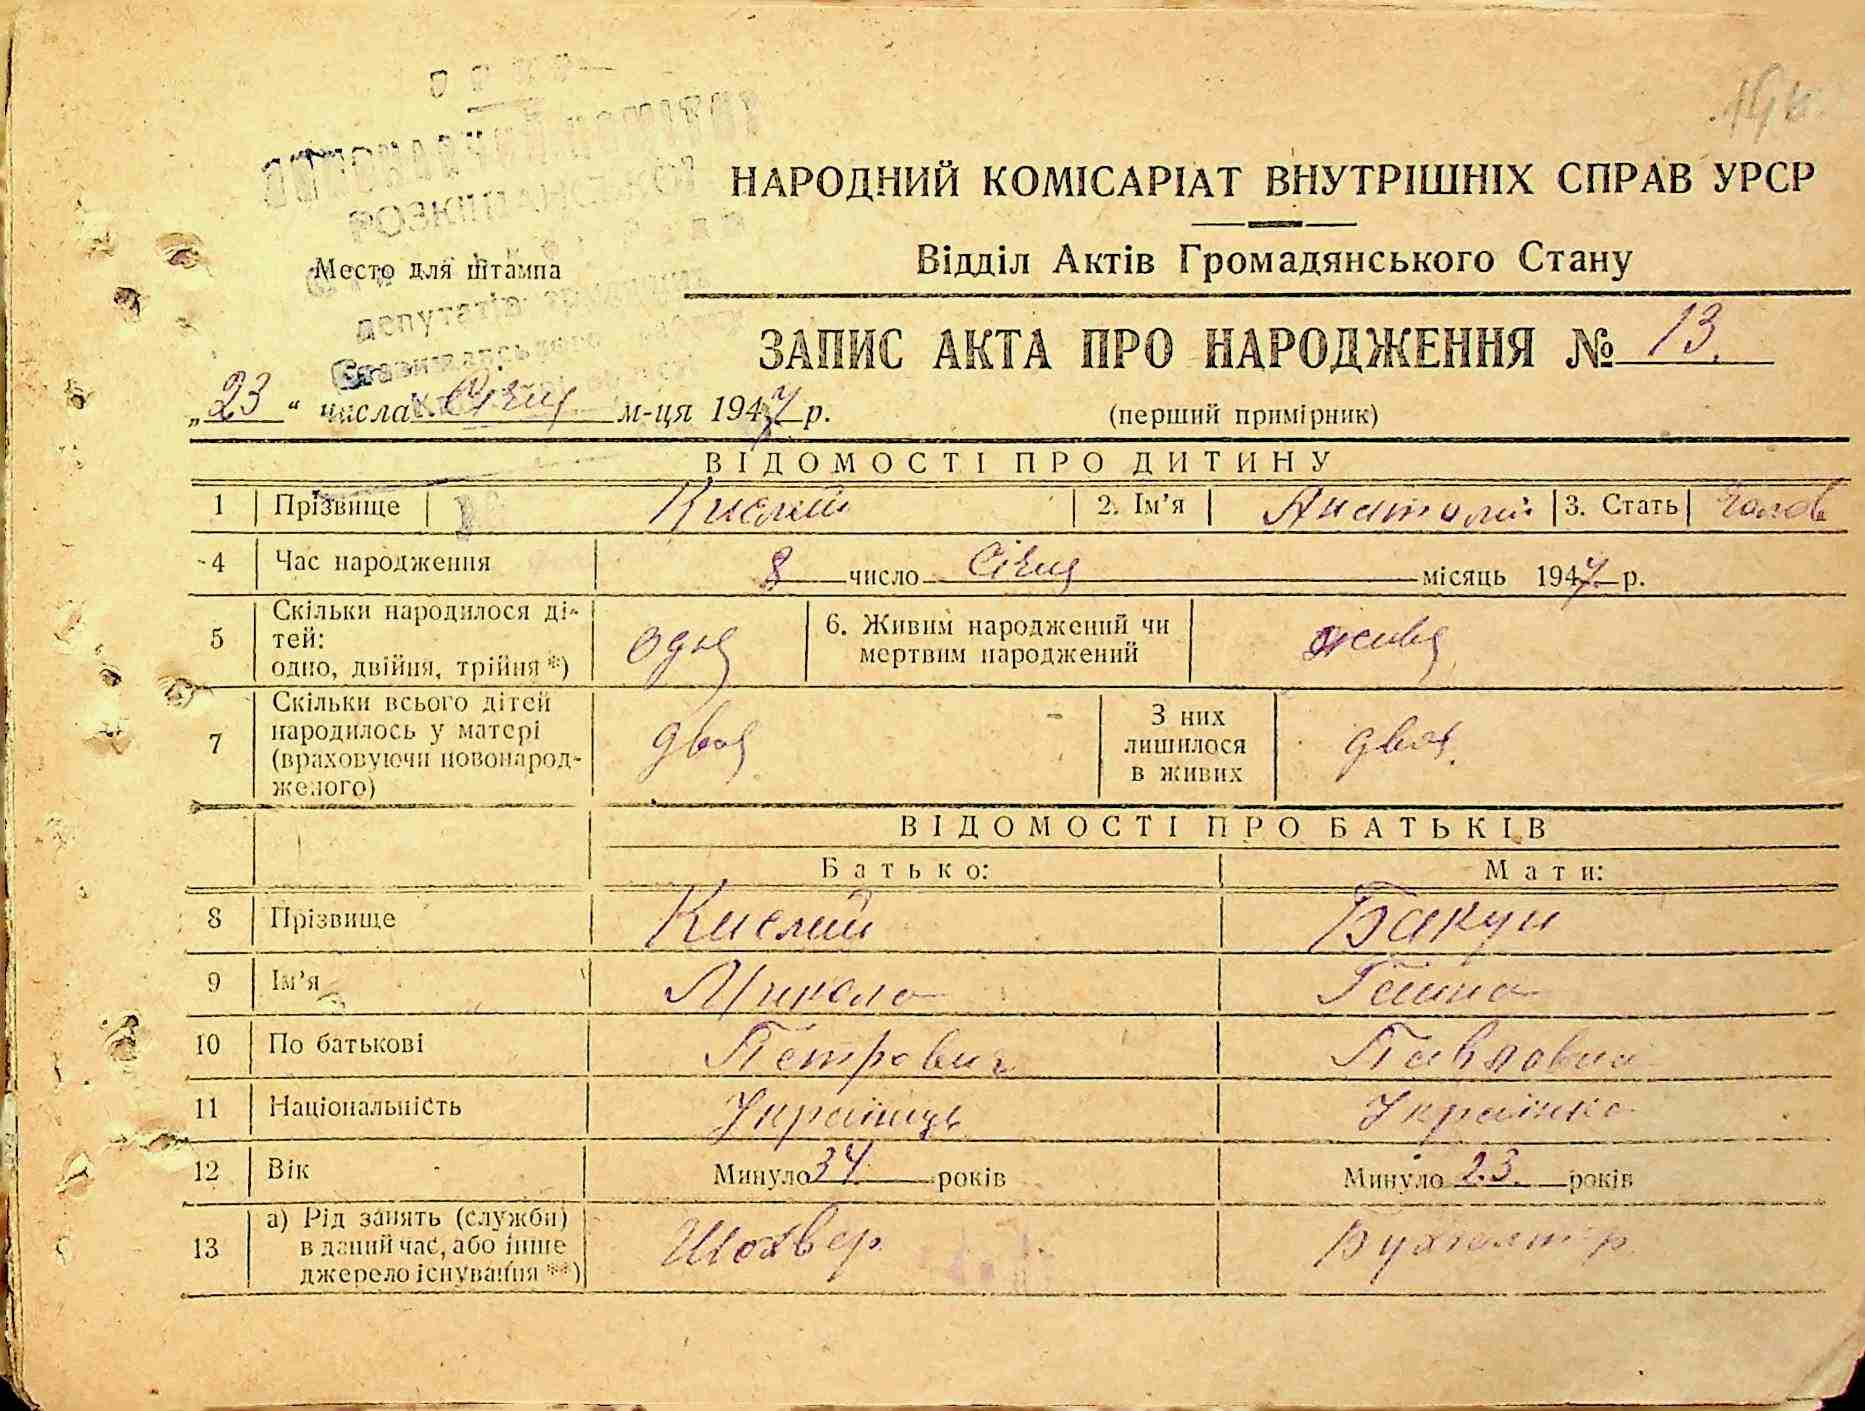 НАРОДНИЙ КОМІСАРІАТ ВНУТРІШНІХ СПРАВ УРСР
Відділ Актів Громадянського Стану
Место для штампа
ВИКОНАВЧИЙ КОМІТЕТ
депутатів трудящих
ЗАПИС АКТА ПРО НАРОДЖЕННЯ № 13.
„23“ числа Січня м-ця 1947 р.
(перший примірник)
ВІДОМОСТІ ПРО ДИТИНУ
1 Прізвище Кислий 2. Ім'я Анатолій 3. Стать Чолов
4 Час народження 8 число Січня місяць 1947 р.
5 Скільки народилося ді-
тей:
одно, двійня, трійня *) одня
6. Живим народжений чи
мертвим народжений живя
7 Скільки всього дітей
народилось у матері
(враховуючи новонарод-
женого) двоя
З них
лишилося
в живих двоя.
ВІДОМОСТІ ПРО БАТЬКІВ
Батько: Мати:
8 Прізвище Кислий Бакун
9 Ім'я Микола Ганна
10 По батькові Петрович Павловна
11 Національність Українець Українка
12 Вік Минуло 34 років Минуло 23. років
13 а) Рід занять (служби)
в даний час, або інше
джерело існування **) Шохвер Бухгалтер